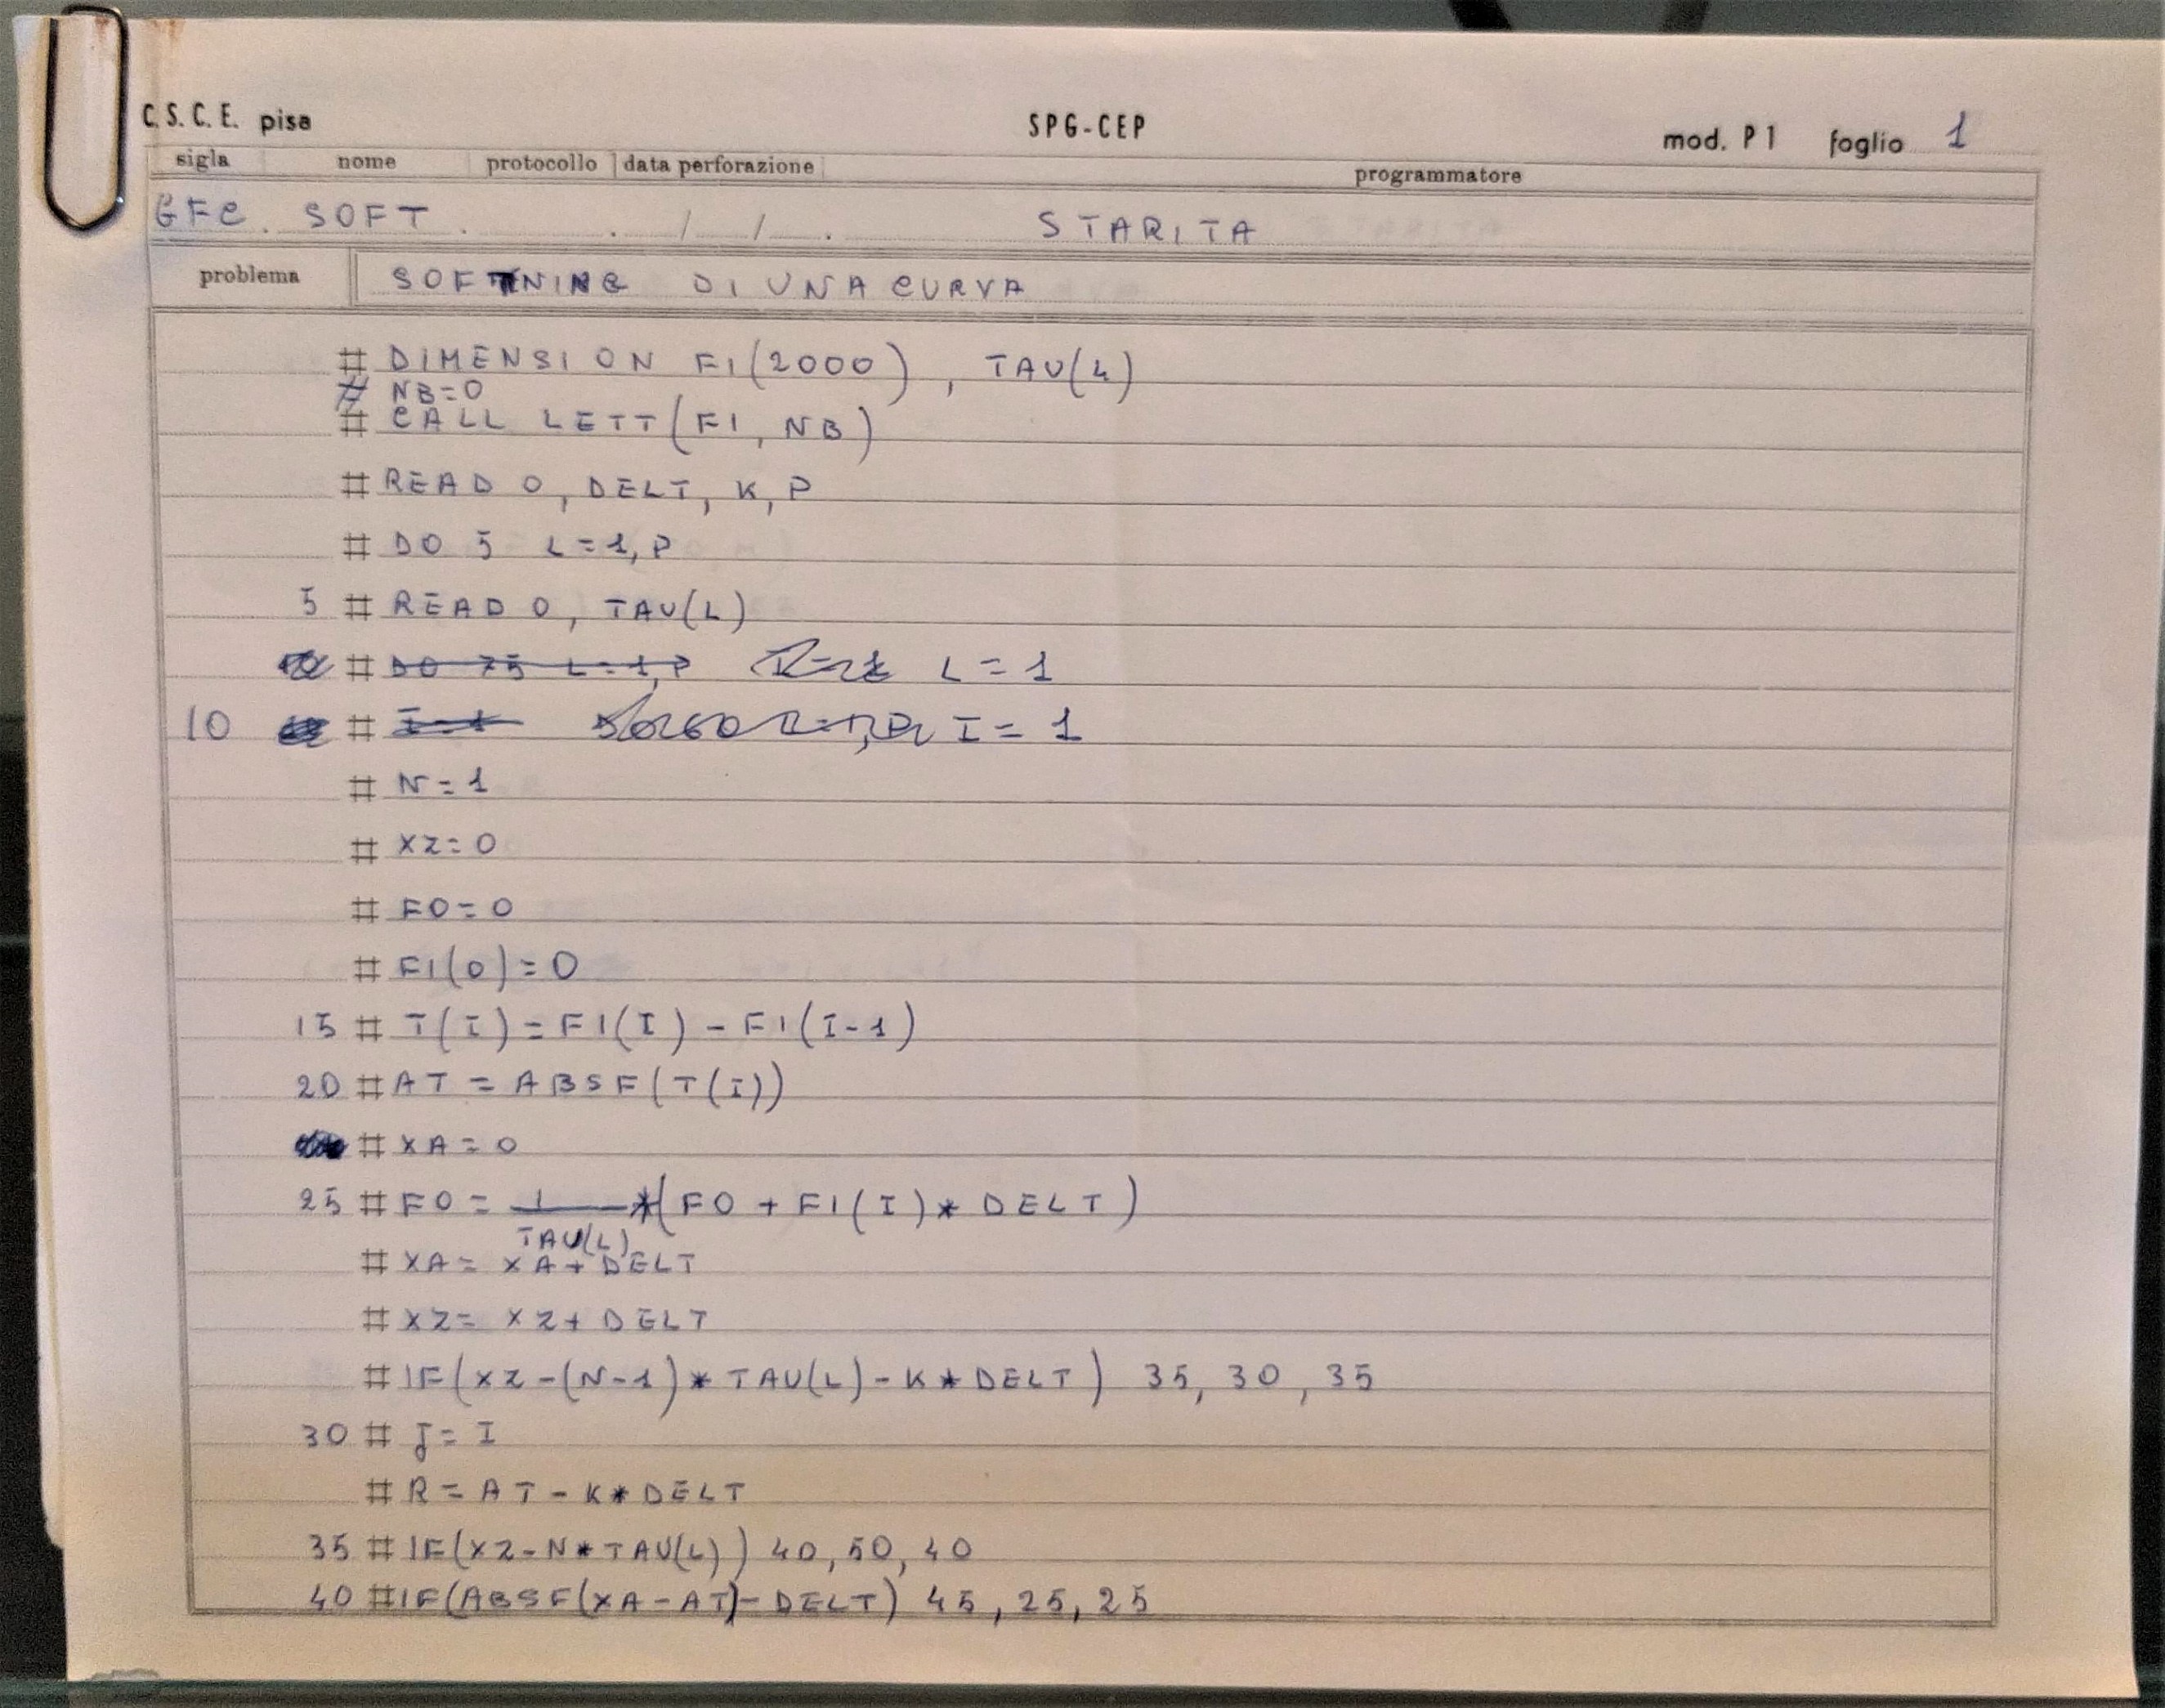 C. S. C. E. pisa SPG-CEP mod. P 1 foglio 1
sigla nome protocollo data perforazione programmatore
GFC. SOFT. . / / . STARITA
problema SOFTNING DI UNA CURVA
# DIMENSION FI(2000), TAU(4)
# NB=0
# CALL LETT(FI, NB)
# READ 0, DELT, K, P
# DO 5 L=1, P
5 # READ 0, TAU(L)
# DO 75 L=1, P L=1
10 # I=1 I=1
# N=1
# XZ=0
# FO=0
# FI(0)=0
15 # T(I)=FI(I)-FI(I-1)
20 # AT=ABSF(T(I))
# XA=0
25 # FO= 1 *(FO+FI(I)*DELT)
TAU(L)
# XA=XA+DELT
# XZ=XZ+DELT
# IF(XZ-(N-1)*TAU(L)-K*DELT) 35, 30, 35
30 # J=I
# R=AT-K*DELT
35 # IF(XZ-N*TAU(L)) 40, 50, 40
40 # IF(ABSF(XA-AT)-DELT) 45, 25, 25